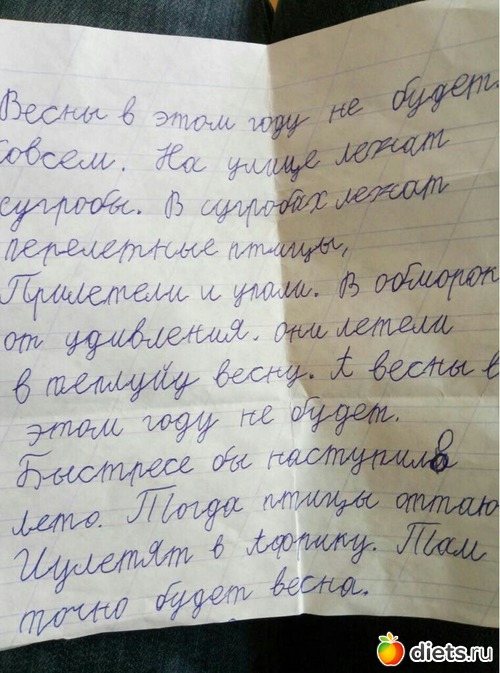 Весны в этом году не будет.
совсем. На улице лежат
сугробы. В сугробах лежат
перелетные птицы,
Прилетели и упали. В обморок
от удивления. они летели
в теплуйу весну. А весны в
этом году не будет.
Быстресе бы наступило
лето. Тогда птицы оттаю
И улетят в Африку. Там
точно будет весна.
diets.ru